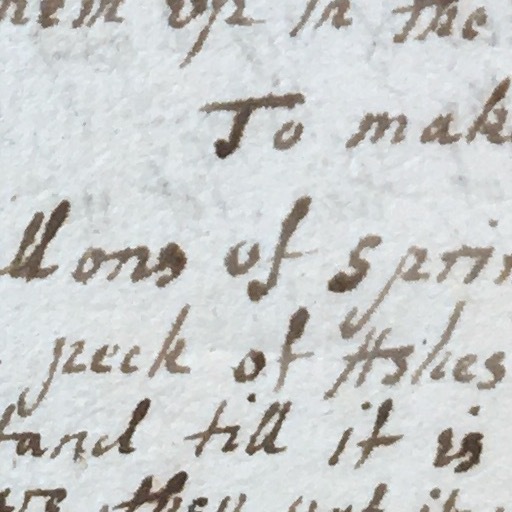 them up in the
To mak
llons of sprin
peck of Ashes
tand till it is